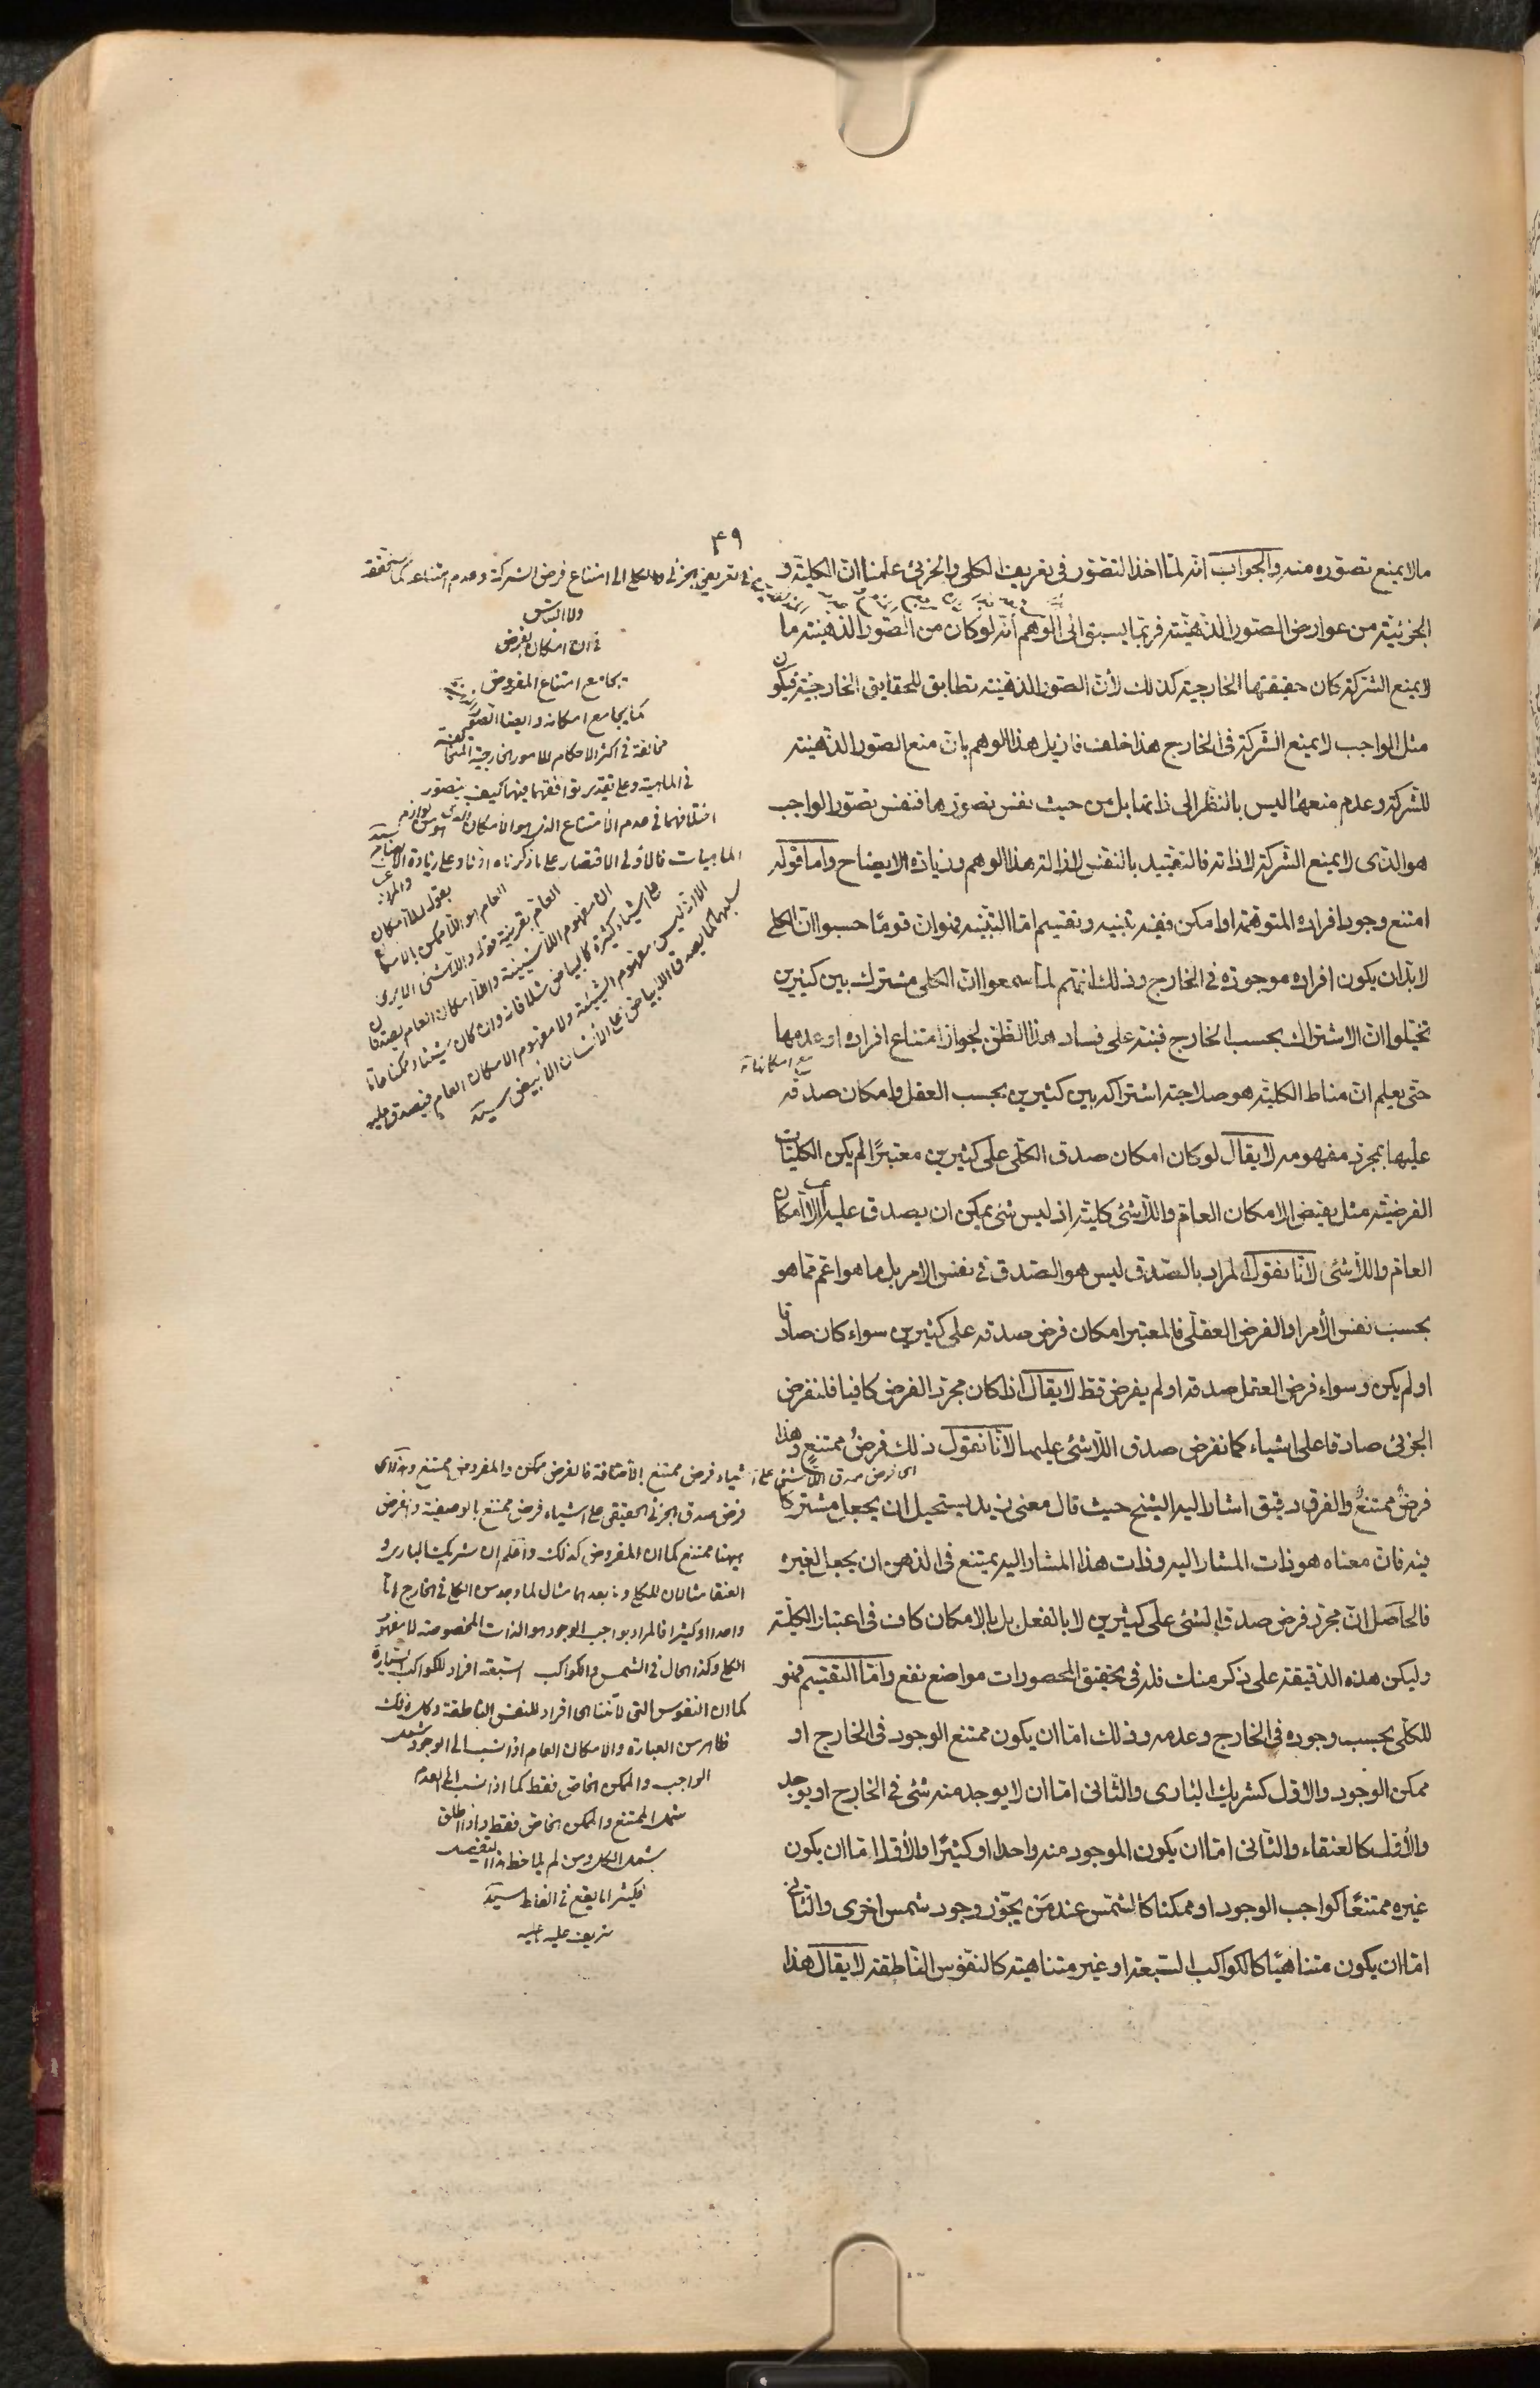 ۴۹
ما لا يمنع تصوّره منه والجواب انّه لمّا اخذ التصوّر فى تعريف الكلى والجزئى علمنا انّ الكلية و
الجزئية من عوارض الصور الذهنية فربّما يسبق الى الوهم انّه لو كان من الصور الذهنية ما
لا يمنع الشركة كان حقيقتها الخارجية كذلك لأنّ الصور الذهنية تطابق للحقايق الخارجية فيكون
مثل الواجب لا يمنع الشركة فى الخارج هذا خلف فازيل هذا الوهم بانّ منع الصور الذهنية
للشركة وعدم منعها ليس بالنظر الى ذاتها بل من حيث نفس تصوّرها فنفس تصوّر الواجب
هو الذى لا يمنع الشركة لا ذاته فالتقييد بالنفس لازالة هذا الوهم وزيادة الايضاح واما قوله
امتنع وجود افراده المتوهّمة او امكن ففيه تنبيه وتقسيم امّا التنبيه فهو انّ قومًا حسبوا انّ الكلى
لا بدّ ان يكون افراده موجودة فى الخارج وذلك انّهم لما سمعوا انّ الكلى مشترك بين كثيرين
تخيّلوا انّ الاشتراك بحسب الخارج فنبّه على فساد هذا الظنّ لجواز امتناع افراده او عدمها
مع امكانها
حتى يعلم انّ مناط الكلية هو صلاحية اشتراكه بين كثيرين بحسب العقل وامكان صدقه
عليها بمجرّد مفهومه لا يقال لو كان امكان صدق الكلّى على كثيرين معتبرًا لم يكن الكليّات
الفرضيّة مثل نقيض الامكان العام واللّاشئ كلية اذ ليس شئ يمكن ان يصدق عليه اللّاامكان
العام واللّاشئ لانّا نقول المراد بالصدق ليس هو الصدق فى نفس الامر بل ما هو اعمّ ممّا هو
بحسب نفس الأمر او الفرض العقلى فالمعتبر امكان فرض صدقه على كثيرين سواء كان صادقا
او لم يكن وسواء فرض العقل صدقه او لم يفرض قط لا يقال اذا كان مجرّد الفرض كافيا فلنفرض
الجزئى صادقا على اشياء كما نفرض صدق اللّاشئ عليها لأنّا نقول ذلك فرضُ ممتنعٍ وهذا
فرضٌ ممتنعٌ والفرق دقيق اشار اليه الشيخ حيث قال معنى زيد يستحيل ان يجعل مشتركا
فيه فانّ معناه هو ذات المشار اليه وذات هذا المشار اليه يمتنع فى الذهن ان يجعل لغيره
فالحاصل انّ مجرّد فرض صدق الشئ على كثيرين لا بالفعل بل بالامكان كاف فى اعتبار الكلّية
وليكن هذه الدقيقة على ذكر منك فله فى تحقيق المحصورات مواضع نفع وامّا التقسيم فهو
للكلّى بحسب وجوده فى الخارج وعدمه وذلك امّا ان يكون ممتنع الوجود فى الخارج او
ممكن الوجود والاوّل كشريك البارى والثّانى امّا ان لا يوجد منه شئ فى الخارج او يوجد
والأوّل كالعنقاء والثّانى امّا ان يكون الموجود منه واحدا او كثيرًا والأوّل امّا ان يكون
غيره ممتنعًا كواجب الوجود او ممكنا كالشمس عند مَن يجوّز وجود شمس اخرى والثّانى
امّا ان يكون متناهيًا كالكواكب السّبعة او غير متناهية كالنفوس الناطقة لا يقال هذا
فى تعريفى الجزئى والكلى الى امتناع فرض الشركة وعدم امتناعه كما ستحققه
فى ان امكان الفرض
يجامع امتناع المفروض
كما يجامع امكانه وايضا الصور
مخالفة فى اكثر الاحكام للامور الخارجية
فى الماهية وعلى تقدير توافقهما فيها كيف يتصور
اختلافهما فى عدم الامتناع الذى هو الامكان الذى هو من لوازم
الماهيات فالاولى الاقتصار على ما ذكرناه اوّلا وعلى زيادة الايضاح
بقوله اللاامكان
العام هو اللاممكن بالامكان
العام بقرينة قوله واللاشئ
ان مفهوم اللاشيئية واللاامكان العام يصدقان
على اشياء كثيرة كالبياض مثلا فانه وان كان شيئا وممكنا عاما
الا انه ليس مفهوم الشيئية ولا مفهوم الامكان العام فيصدق عليه
سلبهما كما يصدق اللابياض على الانسان الابيض سيد
اى فرض صدق اللاشئ على اشياء فرض ممتنع بالاضافة فالفرض ممكن والمفروض ممتنع وهذا اى
فرض صدق الجزئى الحقيقى على اشياء فرض ممتنع بالوصفية والفرض
ههنا ممتنع كما ان المفروض كذلك واعلم ان شريك البارى و
العنقا مثالان للكلى وما بعدهما مثال لما وجد من الكلى فى الخارج امّا
واحدا او كثيرا فالمراد بواجب الوجود هو الذات المخصوصة لا مفهومه
الكلى وكذا الحال فى الشمس والكواكب السبعة افراد للكواكب السيارة
كما ان النفوس التى لا تتناهى افراد للنفس الناطقة وكل ذلك
ظاهر من العبارة والامكان العام اذا نسب الى الوجود شمل
الواجب والممكن الخاص فقط كما اذا نسب الى العدم
شمل الممتنع والممكن الخاص فقط واذا اطلق
يشمل الكل ومن لم يلاحظ هذا التفصيل
فكثيرا ما يقع فى الغلط سيد
شريف عليه